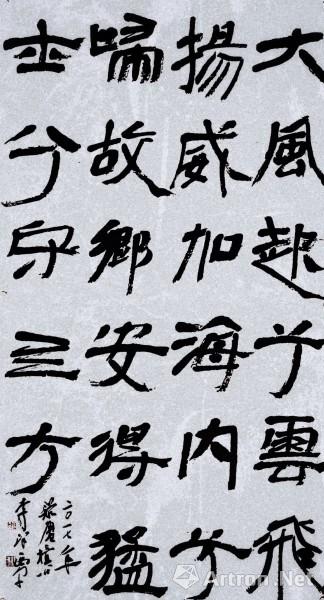 大風起兮雲飛
揚威加海內兮
歸故鄉安得猛
士兮守三方
二〇一七年
Artron.Net